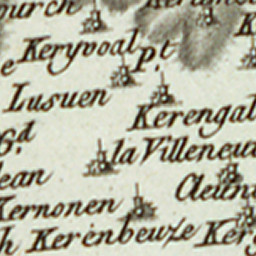 Keryvoal pt
e
Lusuen
Kerengal
6.d
la Villeneu
ean
Kernonen
Kerénbeuze Ker